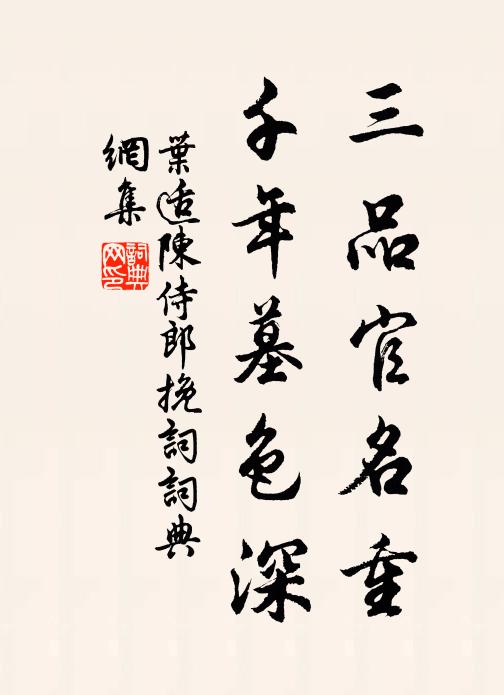 三品官名重
千年墓色深
葉適陳侍郎挽詞詞典
網集
詞典
网印